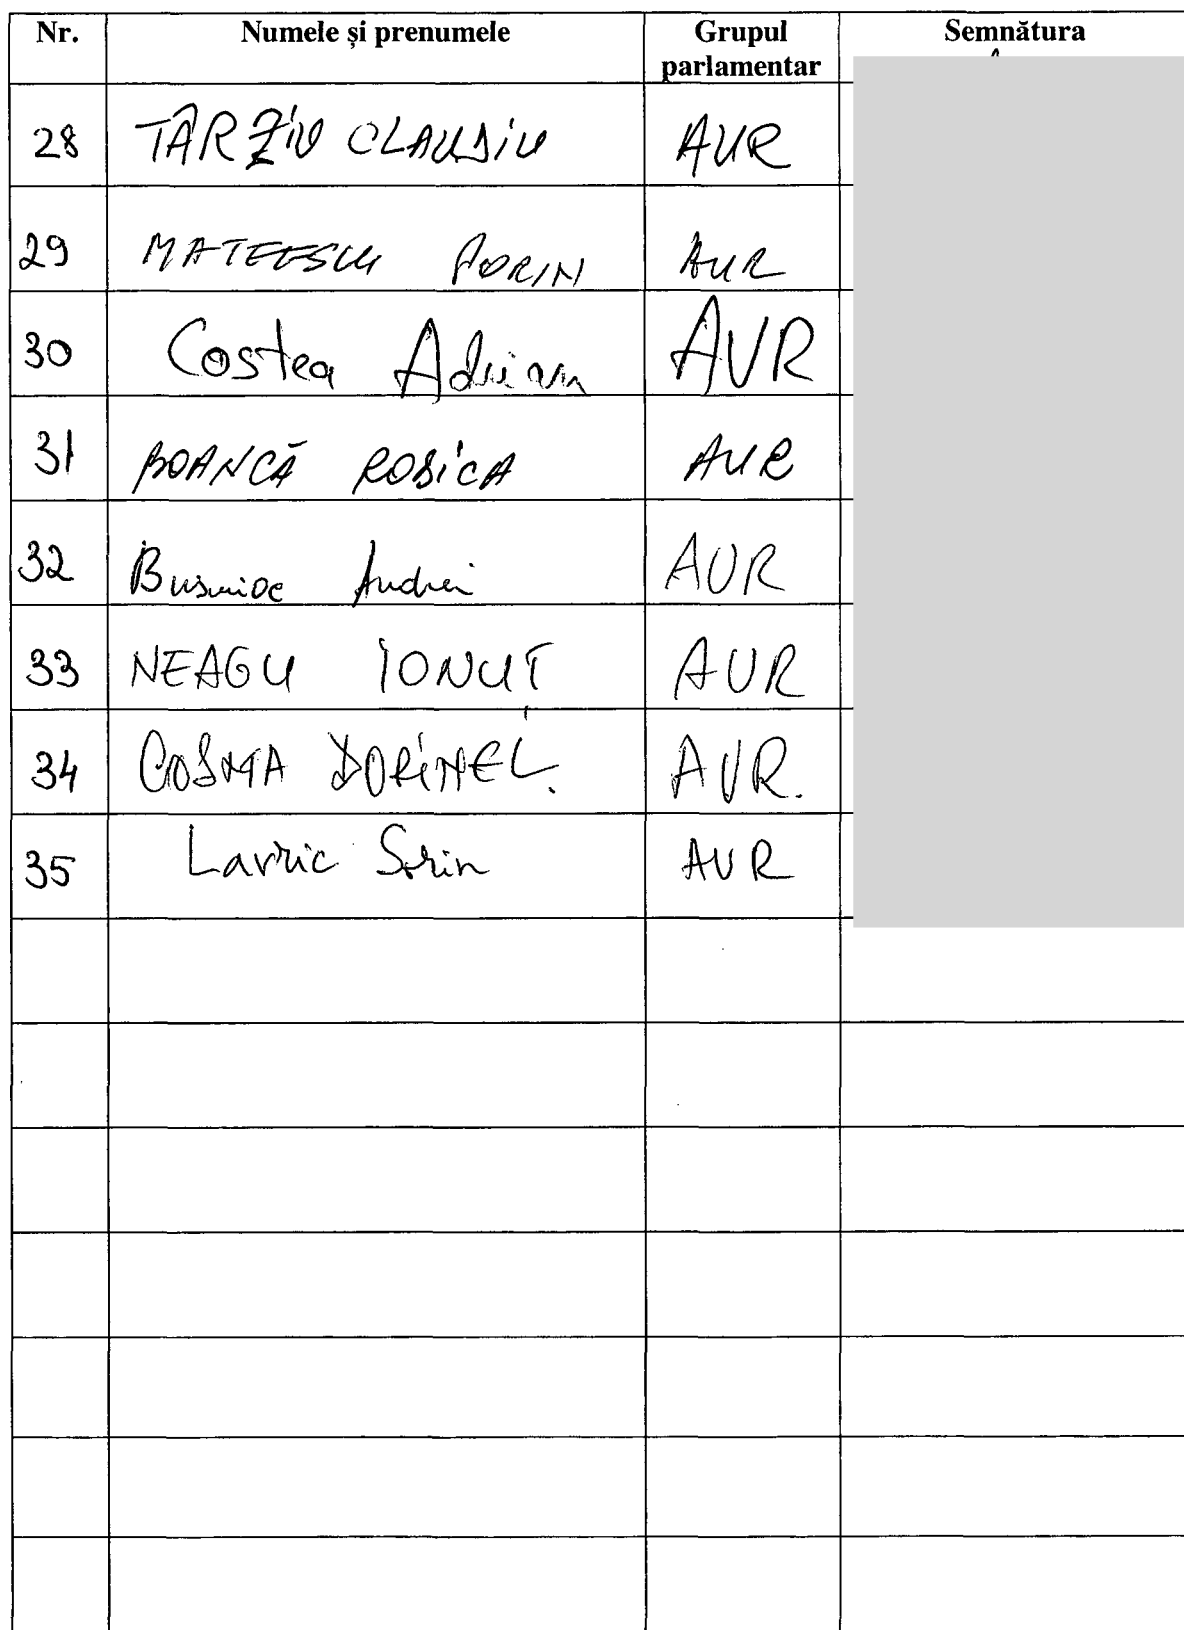 Nr. Numele și prenumele Grupul parlamentar Semnătura
28 TÂRZIU CLAUDIU AUR
29 MATEESCU SORIN AUR
30 Costea Adrian AUR
31 BOANCĂ RODICA AUR
32 Busuioc Andrei AUR
33 NEAGU IONUȚ AUR
34 COSMA DORINEL. AUR.
35 Lavric Sorin AUR